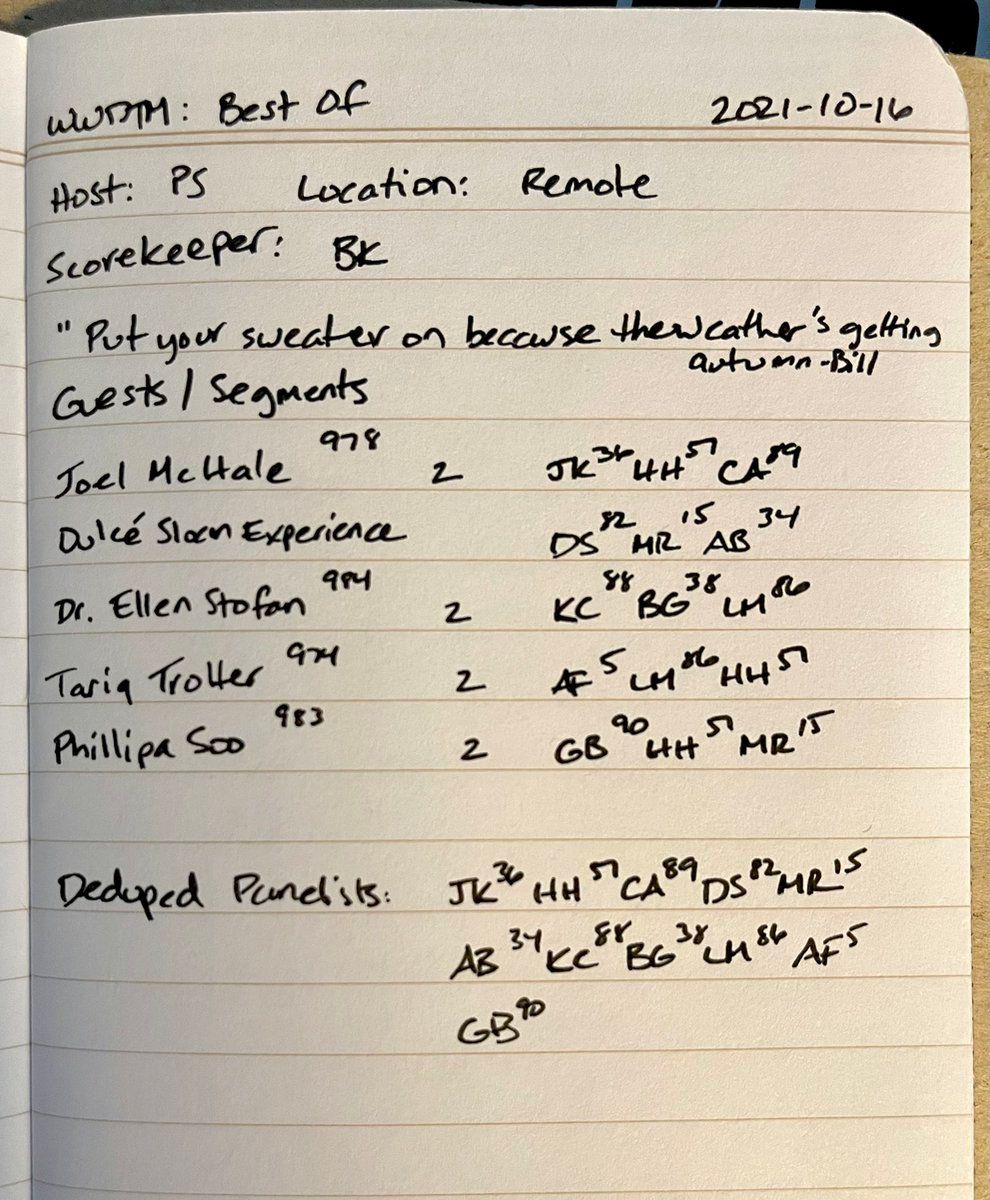 WWDTM: Best Of 2021-10-16
Host: PS Location: Remote
Scorekeeper: BK
"Put your sweater on because the weather's getting
autumn -Bill
Guests / Segments
Joel McHale 978 2 JK36 HH51 CA89
Dulcé Sloan Experience DS82 MR15 AB34
Dr. Ellen Stofan 984 2 KC88 BG38 LM86
Tariq Trotter 974 2 AF5 LM86 HH51
Phillipa Soo 983 2 GB90 HH51 MR15
Deduped Panelists: JK36 HH51 CA89 DS82 MR15
AB34 KC88 BG38 LM86 AF5
GB90